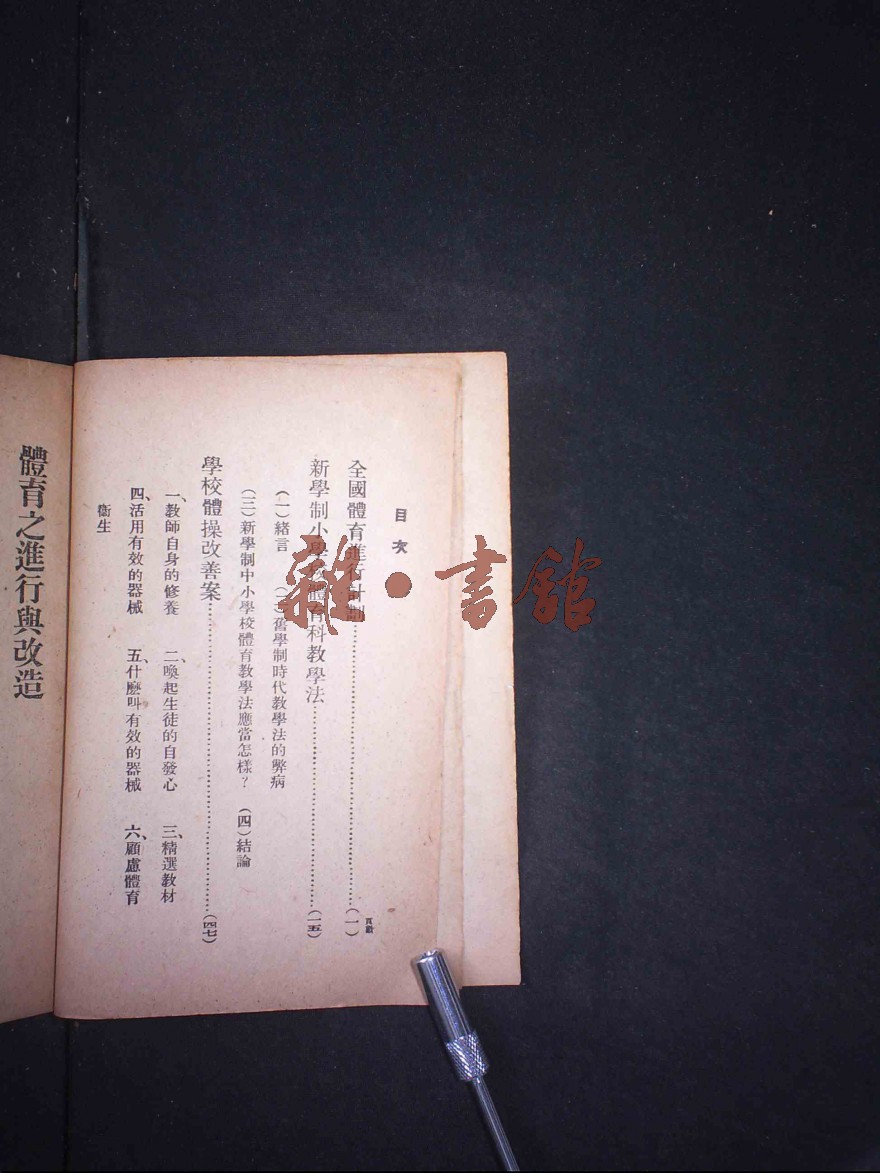 目次
頁數
全國體育進行計劃……(一)
新學制小學校體育科教學法……(一五)
(一)緒言 (二)舊學制時代教學法的弊病
(三)新學制中小學校體育教學法應當怎樣? (四)結論
學校體操改善案……(四七)
一、教師自身的修養 二、喚起生徒的自發心 三、精選教材
四、活用有效的器械 五、什麽叫有效的器械 六、顧慮體育
衞生
體育之進行與改造
雜·書館